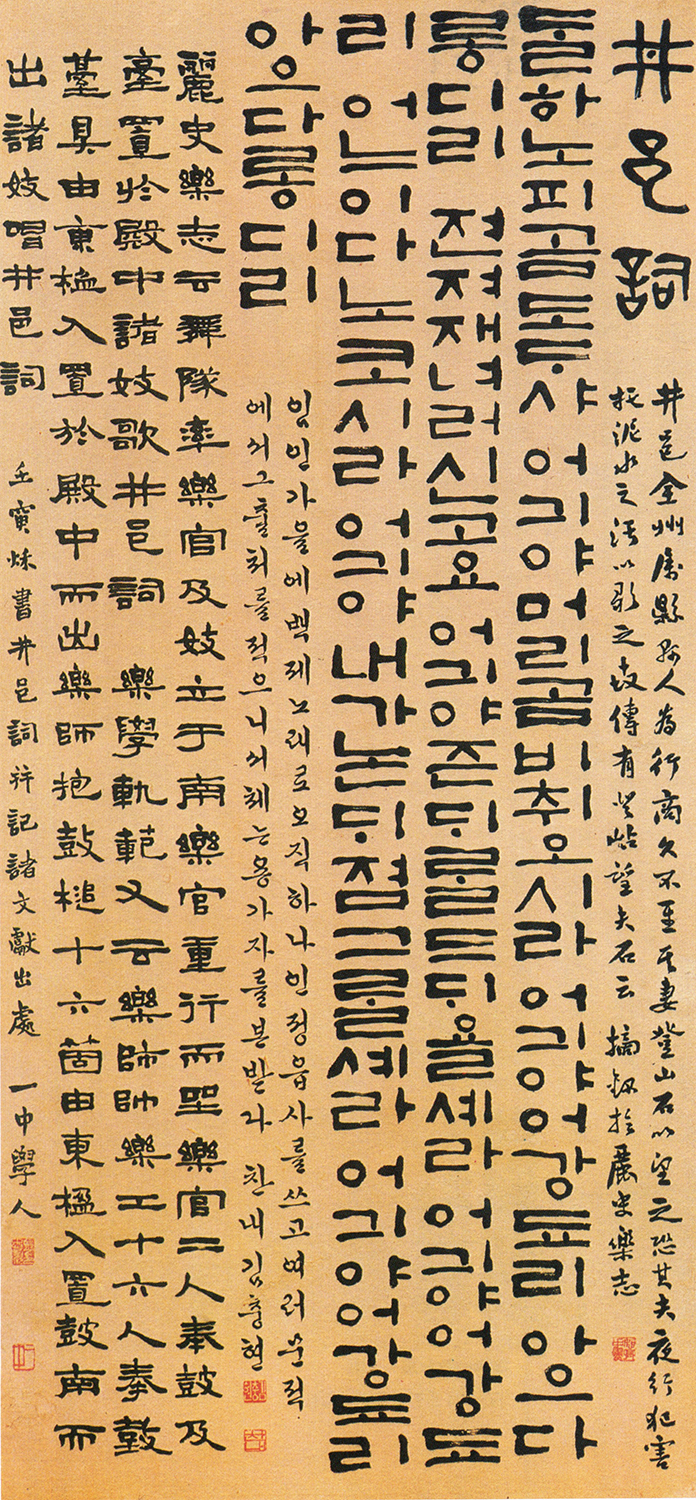 井邑詞
井邑全州屬縣縣人爲行商久不至其妻登山石以望之恐其夫夜行犯害
托泥水之汚以歌之 傳有登岾望夫石云 摘錄於麗史樂志
ᄃᆞᆯ하노피곰도ᄃᆞ샤 어긔야머리곰비취오시라 어긔야어강됴리 아으다
롱디리 젼져재녀러신고요 어긔야즌ᄃᆡᄅᆞᆯ드ᄃᆡ욜셰라 어긔야어강됴
리 어느이다노코시라 어긔야내가논ᄃᆡ졈그ᄅᆞᆯ셰라 어긔야어강됴리
아으다롱디리
임인가을에백제노래로오직하나인정읍사를쓰고여러문적
에서그출처를적으니서체는용가자를본받다 찬내김충현
麗史樂志云舞隊率樂官及妓立于南樂官重行而坐樂官二人奉鼓及
臺置於殿中諸妓歌井邑詞 樂學軌範又云樂師帥樂工十六人奉鼓
臺具由東楹入置於殿中而出樂師抱鼓槌十六箇由東楹入置鼓南而
出諸妓唱井邑詞 壬寅秋書井邑詞幷記諸文獻出處 一中學人